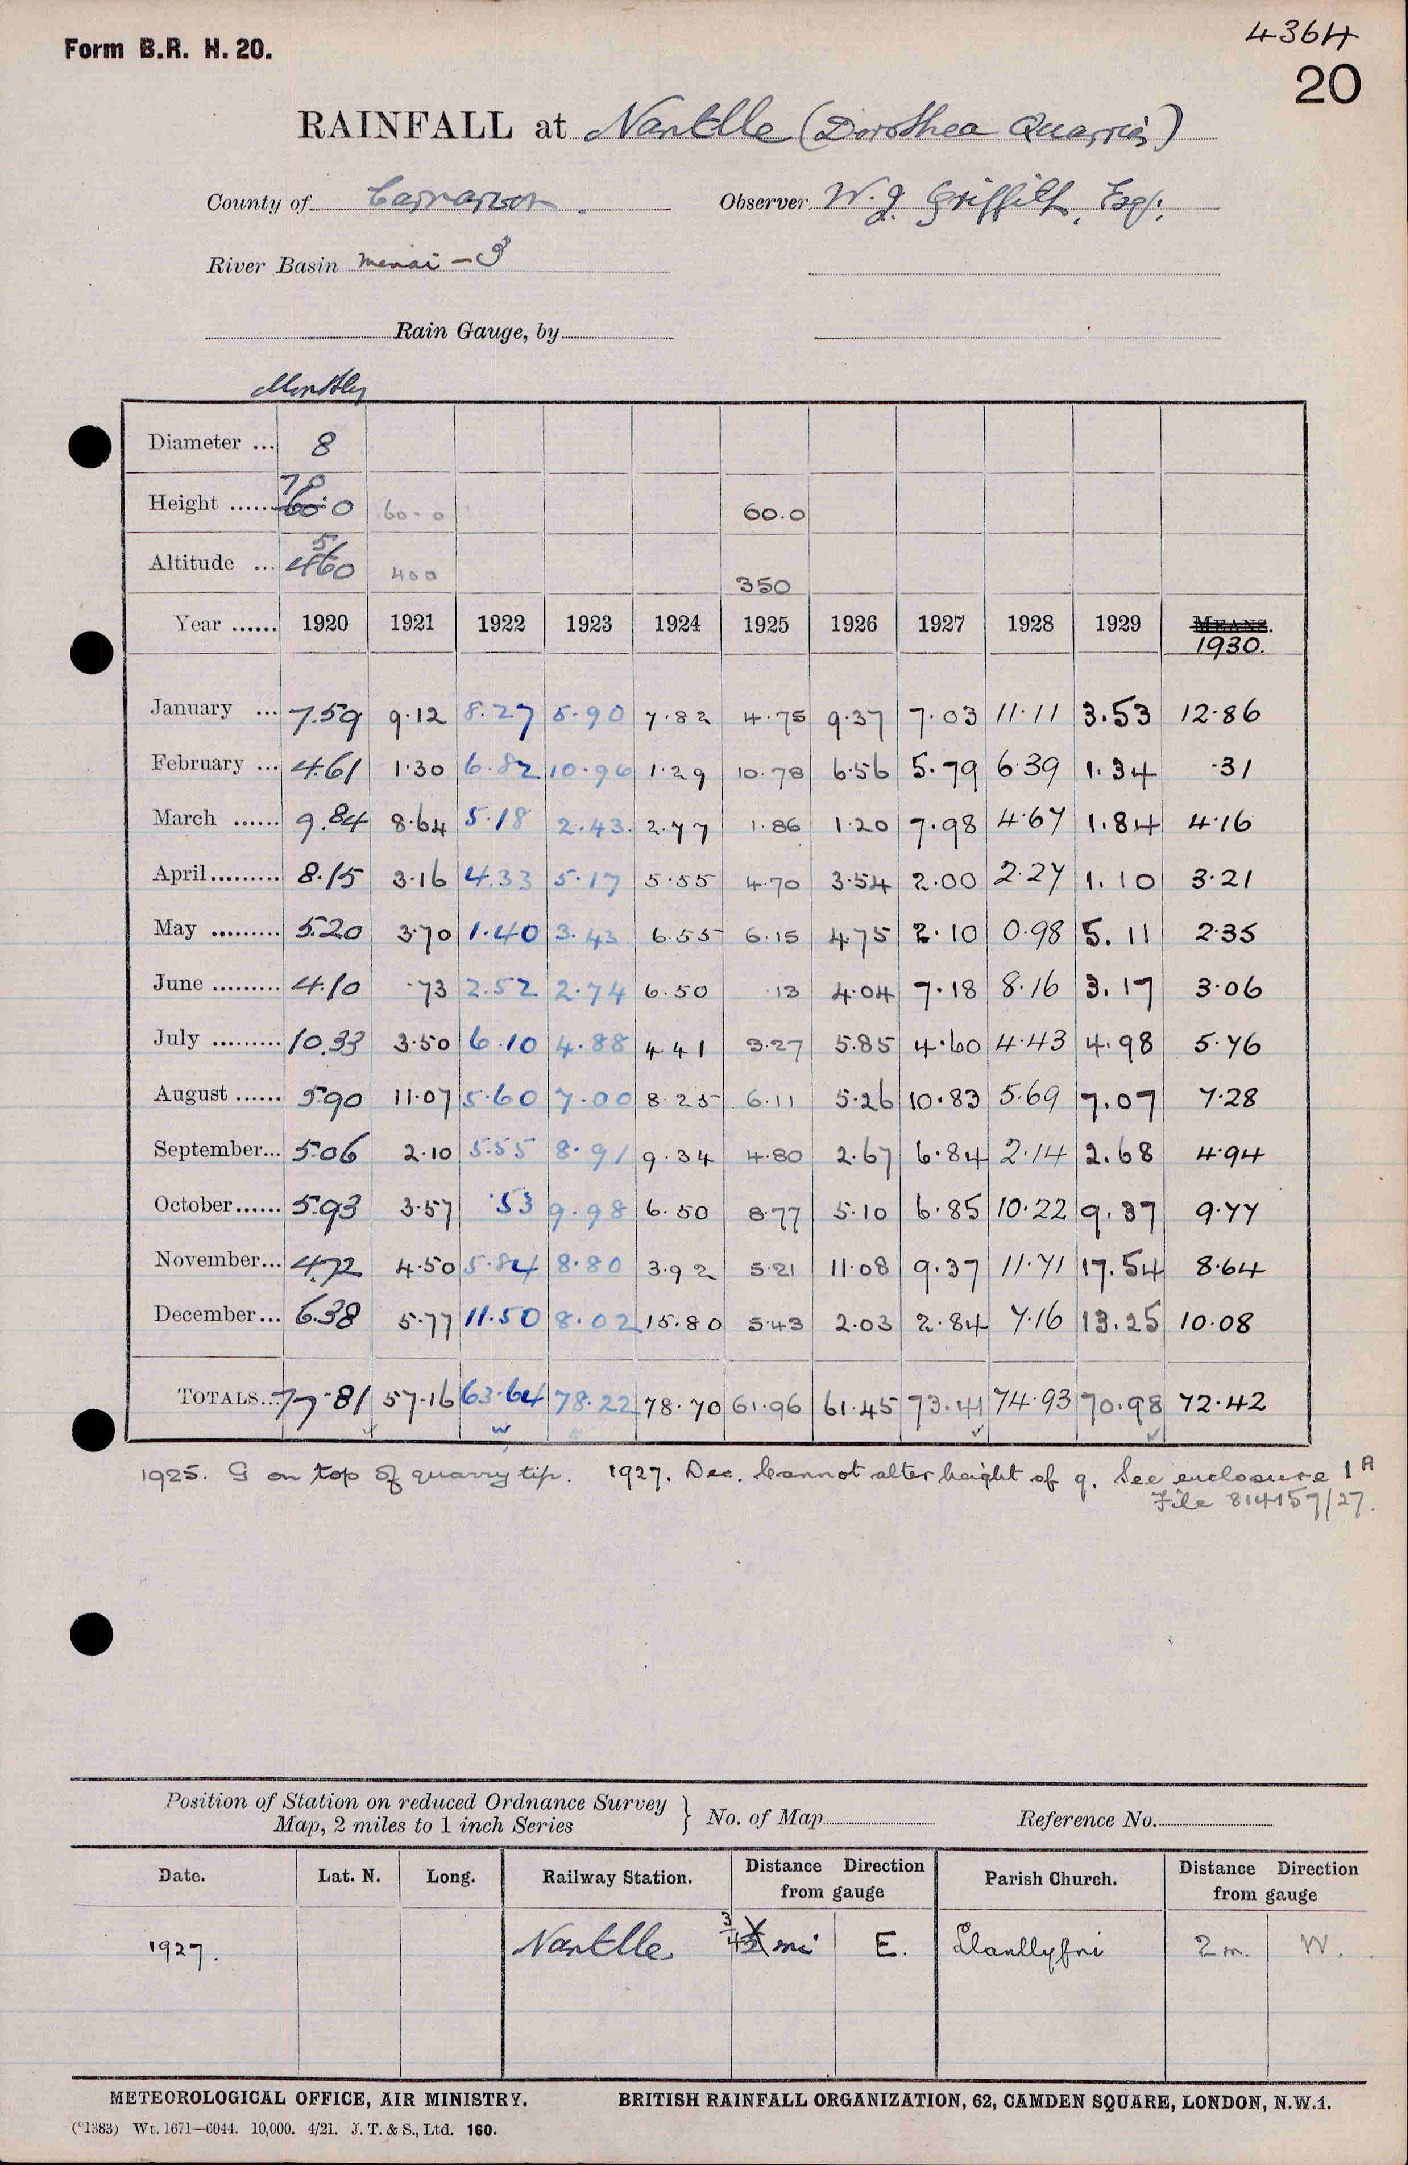 Form B.R. H. 20.
4364
20
RAINFALL at Nantlle (Dorothea Quarries)
County of Carnarvon. Observer W. J. Griffith, Esq.,
River Basin Menai - 3
Rain Gauge, by
Monthly
Diameter ... 8
Height ...... 70 60.0 60-0 60.0
Altitude ... 5 460 400 350
Year ...... 1920 1921 1922 1923 1924 1925 1926 1927 1928 1929 MEANS.
1930.
January ... 7.59 9.12 8.27 5.90 7.82 4.75 9.37 7.03 11.11 3.53 12.86
February ... 4.61 1.30 6.82 10.96 1.29 10.78 6.56 5.79 6.39 1.34 .31
March ...... 9.84 8.64 5.18 2.43 2.77 1.86 1.20 7.98 4.67 1.84 4.16
April......... 8.15 3.16 4.33 5.17 5.55 4.70 3.54 2.00 2.27 1.10 3.21
May ......... 5.20 3.70 1.40 3.43 6.55 6.15 4.75 2.10 0.98 5.11 2.35
June ......... 4.10 .73 2.52 2.74 6.50 .13 4.04 7.18 8.16 3.17 3.06
July ......... 10.33 3.50 6.10 4.88 4.41 3.27 5.85 4.60 4.43 4.98 5.76
August ...... 5.90 11.07 5.60 7.00 8.25 6.11 5.26 10.83 5.69 7.07 7.28
September... 5.06 2.10 5.55 8.91 9.34 4.80 2.67 6.84 2.14 2.68 4.94
October...... 5.93 3.57 .53 9.98 6.50 8.77 5.10 6.85 10.22 9.37 9.77
November... 4.72 4.50 5.84 8.80 3.92 5.21 11.08 9.37 11.71 17.54 8.64
December... 6.38 5.77 11.50 8.02 15.80 5.43 2.03 2.84 7.16 13.25 10.08
TOTALS... 77.81 57.16 63.64 78.22 78.70 61.96 61.45 73.41 74.93 70.98 72.42
1925. G on top of quarry tip. 1927. Dec. Cannot alter height of g. See enclosure 1A
File 814157/27.
Position of Station on reduced Ordnance Survey
Map, 2 miles to 1 inch Series } No. of Map Reference No.
Date. Lat. N. Long. Railway Station. Distance Direction from gauge Parish Church. Distance Direction from gauge
1927. Nantlle 3/4 mi E. Llanllyfni 2 m. W.
METEOROLOGICAL OFFICE, AIR MINISTRY. BRITISH RAINFALL ORGANIZATION, 62, CAMDEN SQUARE, LONDON, N.W.1.
(*1383) Wt. 1671—6044. 10,000. 4/21. J. T. & S., Ltd. 160.